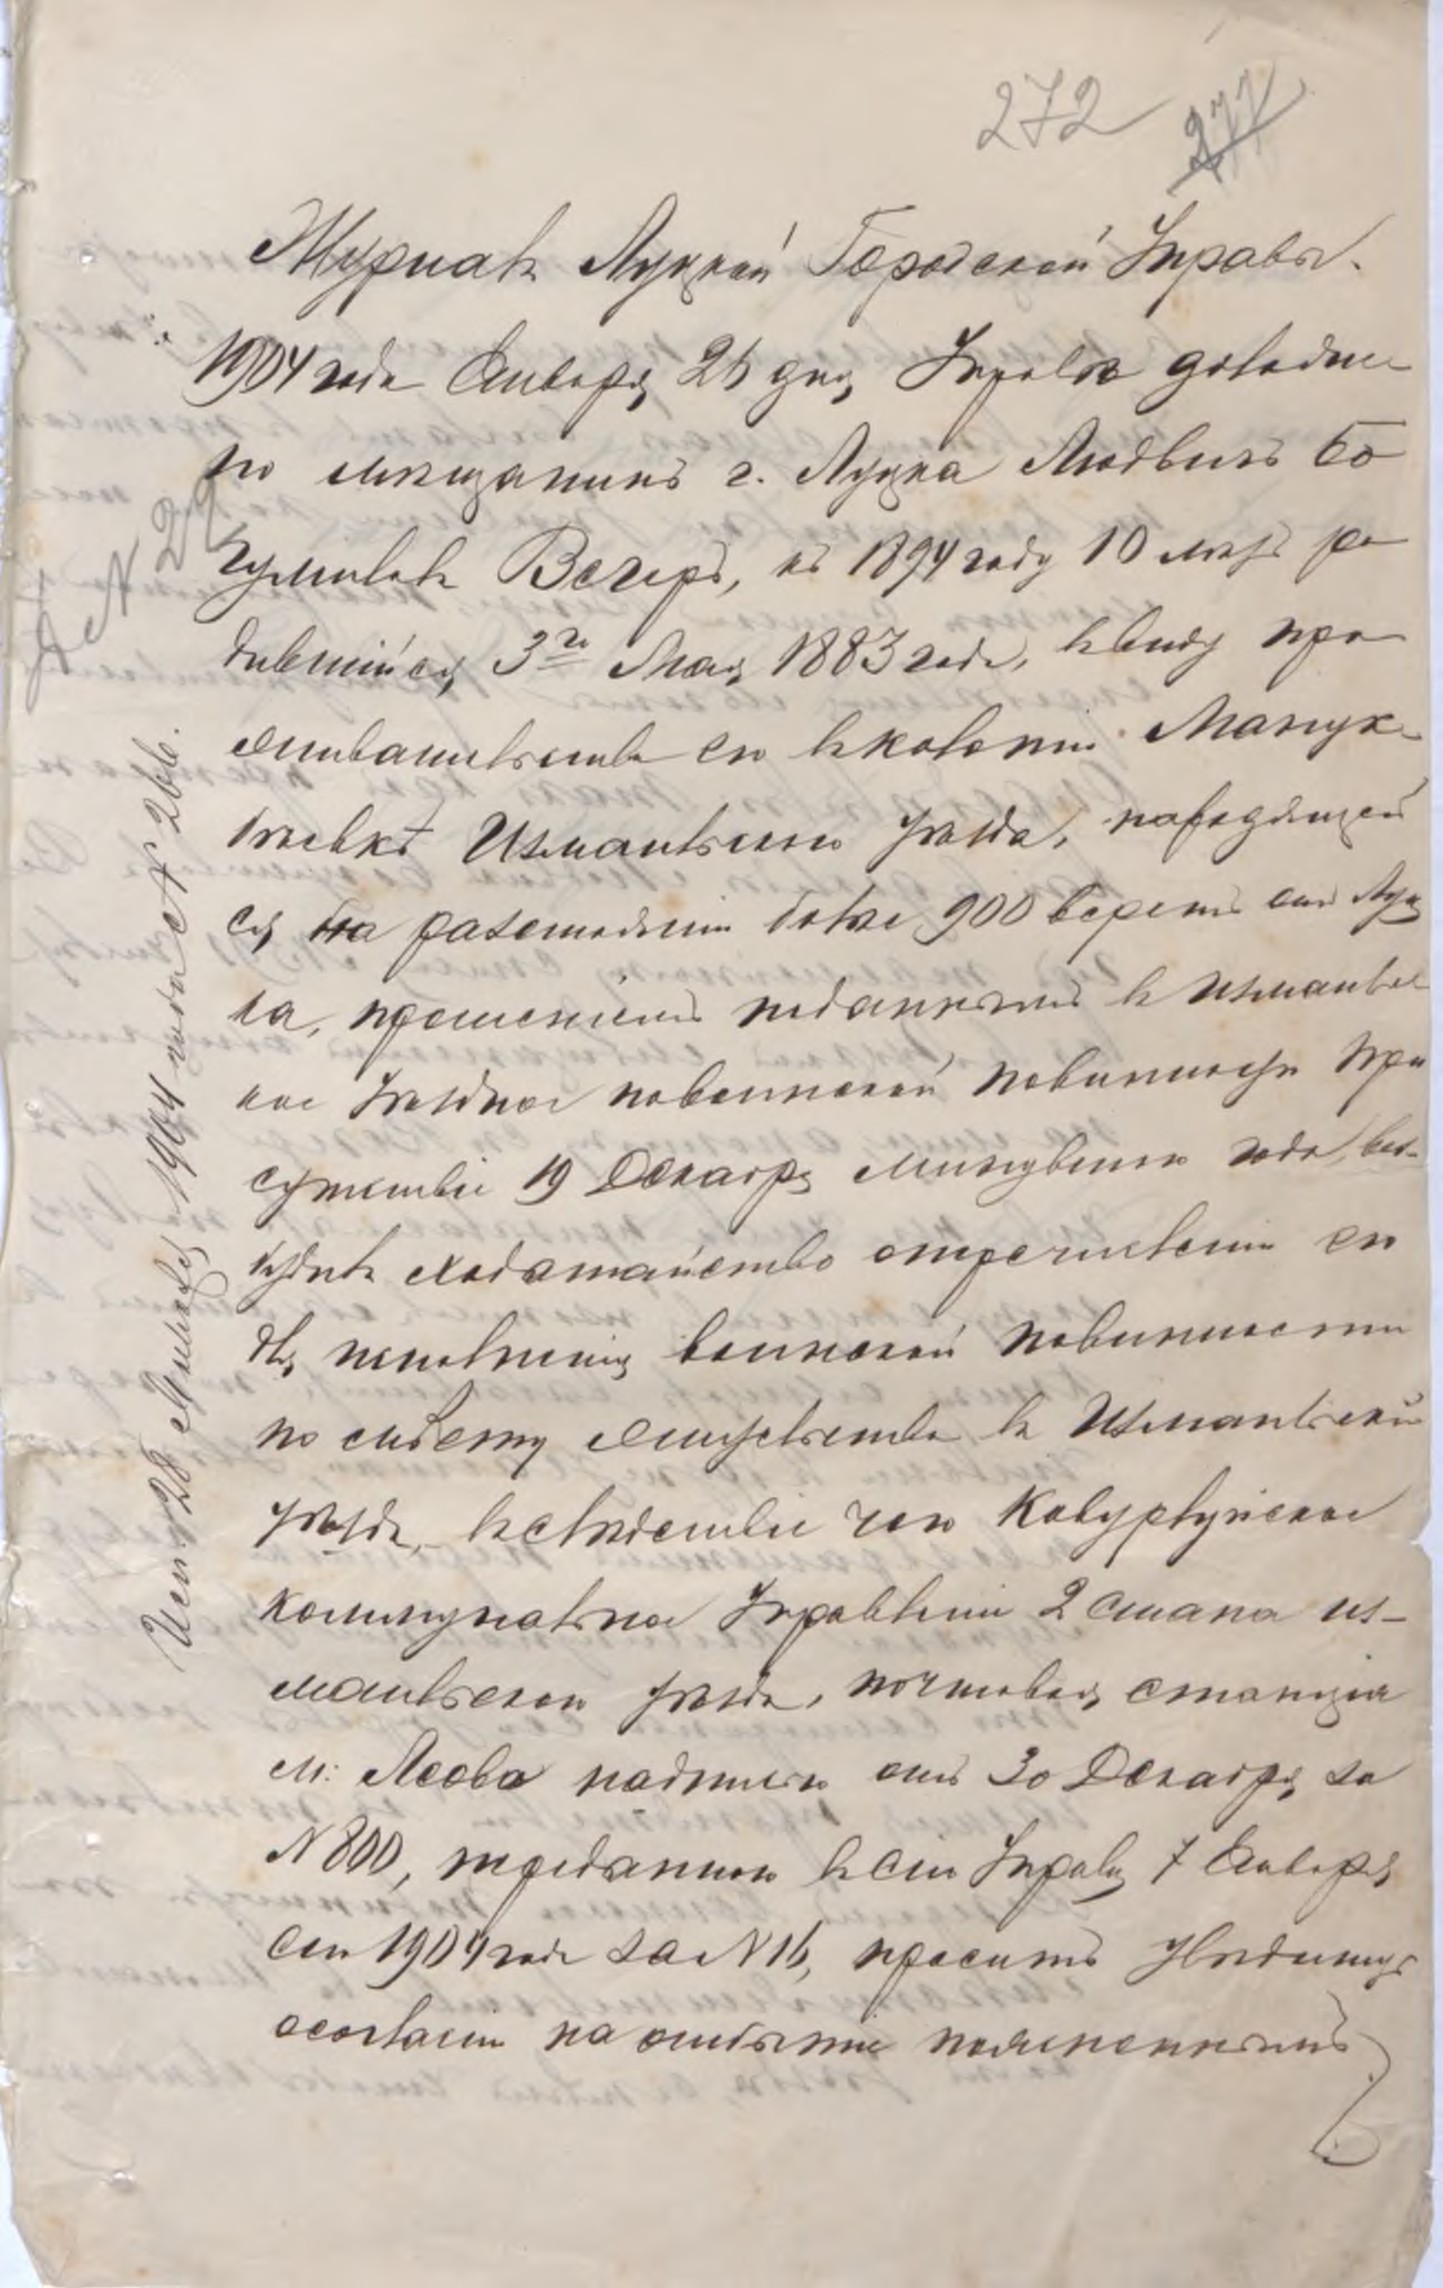 272 277
Журналъ Луцкой Городской Управы.
1904 года Января 26 дня Управа доводит
что мещанинъ г. Луцка Людвигъ Бо
гумиловъ Вечеръ, въ 1894 году 10 мая ро
дившійся 3го Мая 1883 года, ввиду про
живательства его въ колоніи Манук-
бѣевкѣ Измаильскаго уѣзда, находящей
ся на разстояніи болѣе 900 верстъ отъ Луц
ка, прошеніемъ поданнымъ въ Измаильс
кое Уѣздное по воинской повинности При
сутствіе 19 Декабря минувшаго года, воз-
будилъ ходатайство о перечисленіи его
для исполненія воинской повинности
по сему жительства въ Измаильскій
уѣздъ, вслѣдствіе чего
Коммунальное Управленіе 2 стана Из-
маильскаго уѣзда, почтовая станція
м. Лесова надписью отъ 30 Декабря за
№ 800, переданною въ сію Управу 7 Января
сего 1904 года за № 16, проситъ Увѣдомить
о согласіи на
№ 29
Исп. 28 Января 1904 года № 266.